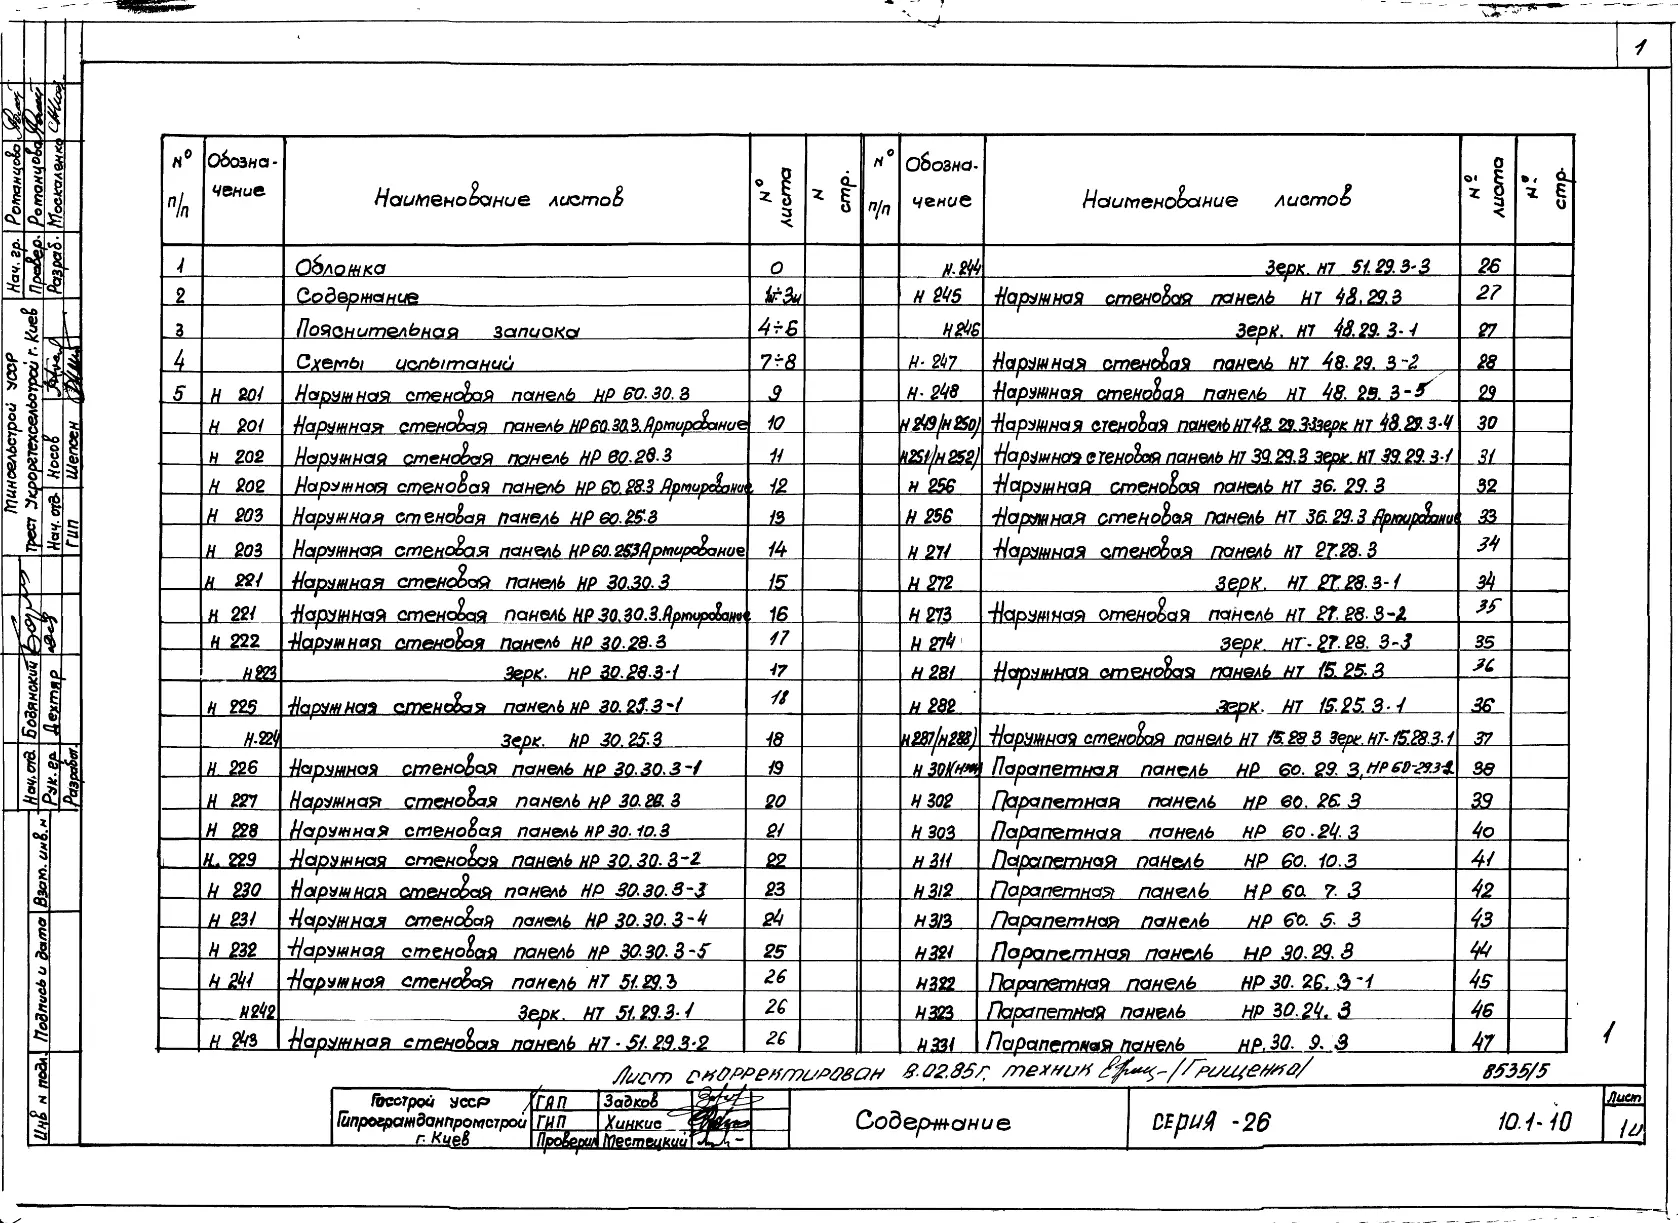 1
№ п/п Обозна-чение Наименование листов № листа N стр.
1 Обложка 0
2 Содержание
3 Пояснительная записка 4÷6
4 Схемы испытаний 7÷8
5 Н 201 Наружная стеновая панель НР 60.30.3 9
Н 201 Наружная стеновая панель НР 60.30.3. Армирование 10
Н 202 Наружная стеновая панель НР 60.28.3 11
Н 202 Наружная стеновая панель НР 60.28.3 Армирование 12
Н 203 Наружная стеновая панель НР 60.25.3 13
Н 203 Наружная стеновая панель НР 60.253 Армирование 14
Н 221 Наружная стеновая панель НР 30.30.3 15
Н 221 Наружная стеновая панель НР 30.30.3. Армирование 16
Н 222 Наружная стеновая панель НР 30.28.3 17
Н 223 Зерк. НР 30.28.3-1 17
Н 225 Наружная стеновая панель НР 30.25.3-1 18
Н-224 Зерк. НР 30.25.3 18
Н. 226 Наружная стеновая панель НР 30.30.3-1 19
Н 227 Наружная стеновая панель НР 30.28.3 20
Н 228 Наружная стеновая панель НР 30.10.3 21
Н. 229 Наружная стеновая панель НР 30.30.3-2 22
Н 230 Наружная стеновая панель НР 30.30.3-3 23
Н 231 Наружная стеновая панель НР 30.30.3-4 24
Н 232 Наружная стеновая панель НР 30.30.3-5 25
Н 241 Наружная стеновая панель НТ 51.29.3 26
Н242 Зерк. НТ 51.29.3-1 26
Н 243 Наружная стеновая панель НТ-51.29.3-2 26
№ п/п Обозна-чение Наименование листов № листа № стр.
Н-244 Зерк. НТ 51.29.3-3 26
Н 245 Наружная стеновая панель НТ 48.29.3 27
Н246 Зерк. НТ 48.29.3-1 27
Н-247 Наружная стеновая панель НТ 48.29.3-2 28
Н-248 Наружная стеновая панель НТ 48.29.3-5 29
Н249(Н250) Наружная стеновая панель НТ48.29.3-3зерк НТ 48.29.3-4 30
Н251(Н252) Наружная стеновая панель НТ 39.29.3 зерк. НТ 39.29.3-1 31
Н 256 Наружная стеновая панель НТ 36.29.3 32
Н 256 Наружная стеновая панель НТ 36.29.3 Армирование 33
Н 271 Наружная стеновая панель НТ 27.28.3 34
Н 272 зерк. НТ 27.28.3-1 34
Н 273 Наружная стеновая панель НТ 27.28.3-2 35
Н 274 зерк. НТ-27.28.3-3 35
Н 281 Наружная стеновая панель НТ 15.25.3 36
Н 282 зерк. НТ 15.25.3-1 36
Н287(Н288) Наружная стеновая панель НТ 15.28 3 Зерк. НТ-15.28.3.1 37
Парапетная панель НР 60.29.3, НР 60-29.3-2 38
Н 302 Парапетная панель НР 60.26.3 39
Н 303 Парапетная панель НР 60.24.3 40
Н 311 Парапетная панель НР 60.10.3 41
Н 312 Парапетная панель НР 60.7.3 42
Н 313 Парапетная панель НР 60.5.3 43
Н 321 Парапетная панель НР 30.29.3 44
Н322 Парапетная панель НР 30.26.3-1 45
Н323 Парапетная панель НР 30.24.3 46
Н 331 Парапетная панель НР.30.9.3 47
1
Лист скорректирован 8.02.85г. техник /Грищенко/
8535/5
Госстрой УССР
Гипрогражданпромстрой
г. Киев
ГАП Задков
ГИП Хинкис
Проверил Местецкий
Содержание
СЕРИЯ -26 10.1-10
Лист
1и
Нач. гр. Романцова
Провер. Романцова
Разраб. Москаленко
Минсельстрой УССР
Трест Укроргтехсельстрой г. Киев
Нач. отд. Носов
ГИП Шепсен
Нач. отд. Бодянский
Рук. гр. Дехтяр
Разработ.
Взам. инв. н
Подпись и дата
Инв н подл.